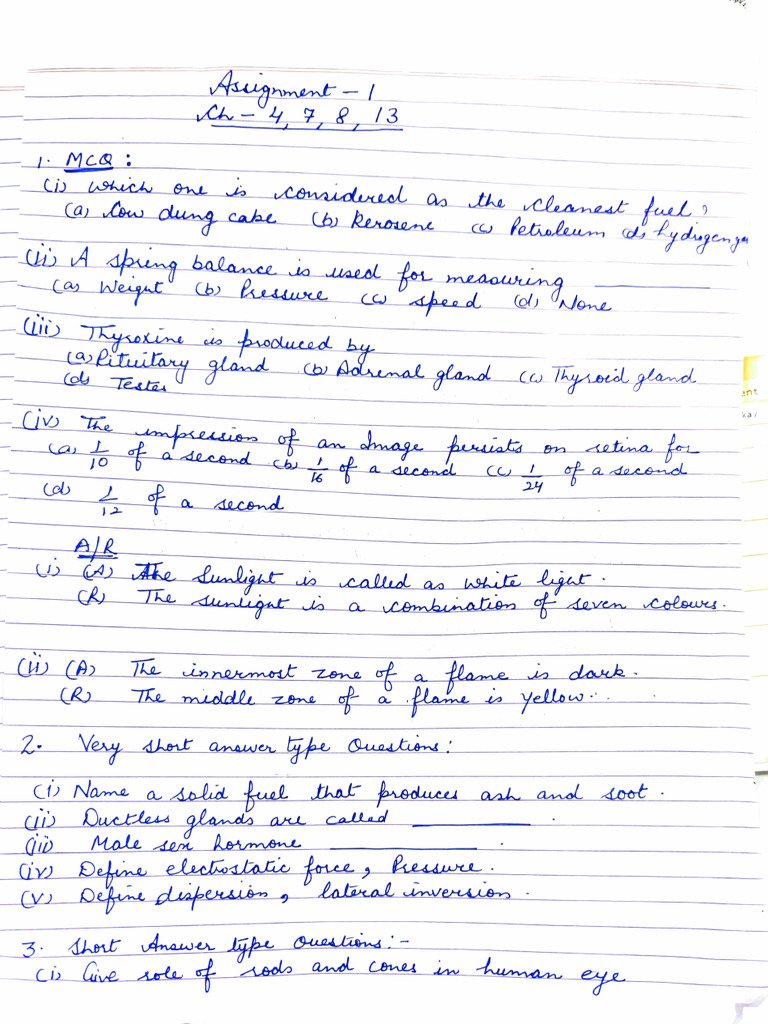 Assignment - 1
Ch - 4, 7, 8, 13
1. MCQ :
(i) Which one is considered as the cleanest fuel?
(a) Cow dung cake (b) Kerosene (c) Petroleum (d) hydrogen gas
(ii) A spring balance is used for measuring ________
(a) Weight (b) Pressure (c) speed (d) None
(iii) Thyroxine is produced by
(a) Pituitary gland (b) Adrenal gland (c) Thyroid gland
(d) Testes
(iv) The impression of an Image persists on retina for
(a) 1/10 of a second (b) 1/16 of a second (c) 1/24 of a second
(d) 1/12 of a second
A/R
(i) (A) The Sunlight is called as white light.
(R) The sunlight is a combination of seven colours.
(ii) (A) The innermost zone of a flame is dark.
(R) The middle zone of a flame is yellow.
2. Very short answer type Questions :
(i) Name a solid fuel that produces ash and soot.
(ii) Ductless glands are called ________ .
(iii) Male sex hormone ________ .
(iv) Define electrostatic force, Pressure.
(v) Define dispersion, lateral inversion.
3. Short Answer type Questions :-
(i) Give role of rods and cones in human eye